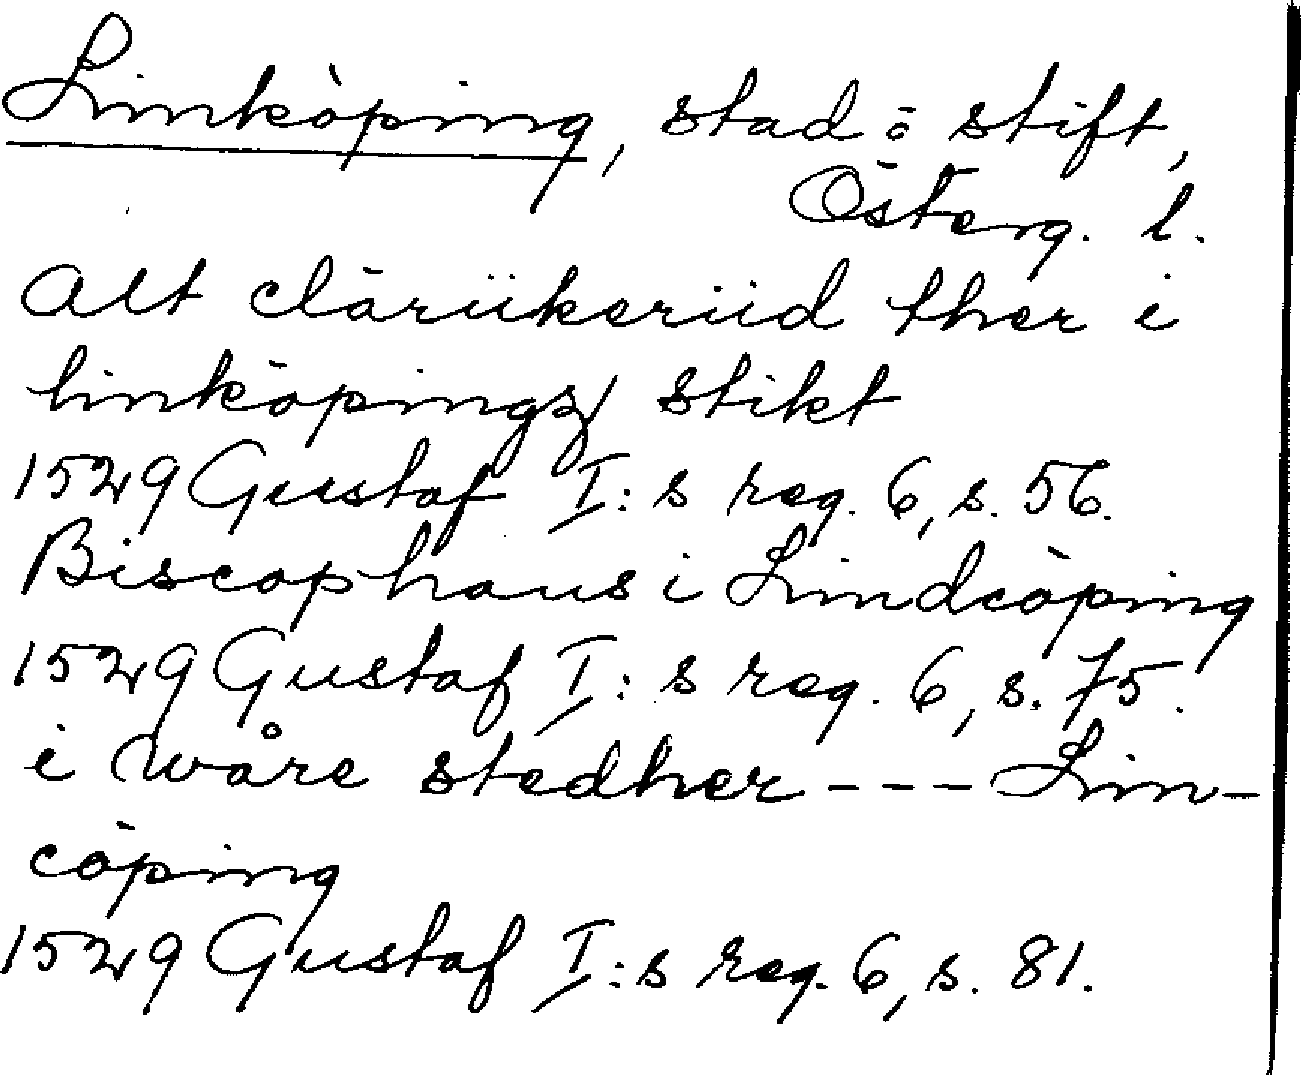 Linköping, stad o stift,
Österg. l.
Alt clärükerüd ther i
linköpingz stikt
1529 Gustaf I:s reg. 6, s. 56.
Biscophaus i Lindcöping
1529 Gustaf I:s reg. 6, s. 75.
i wåre stedher --- Lin-
cöping
1529 Gustaf I:s reg. 6, s. 81.